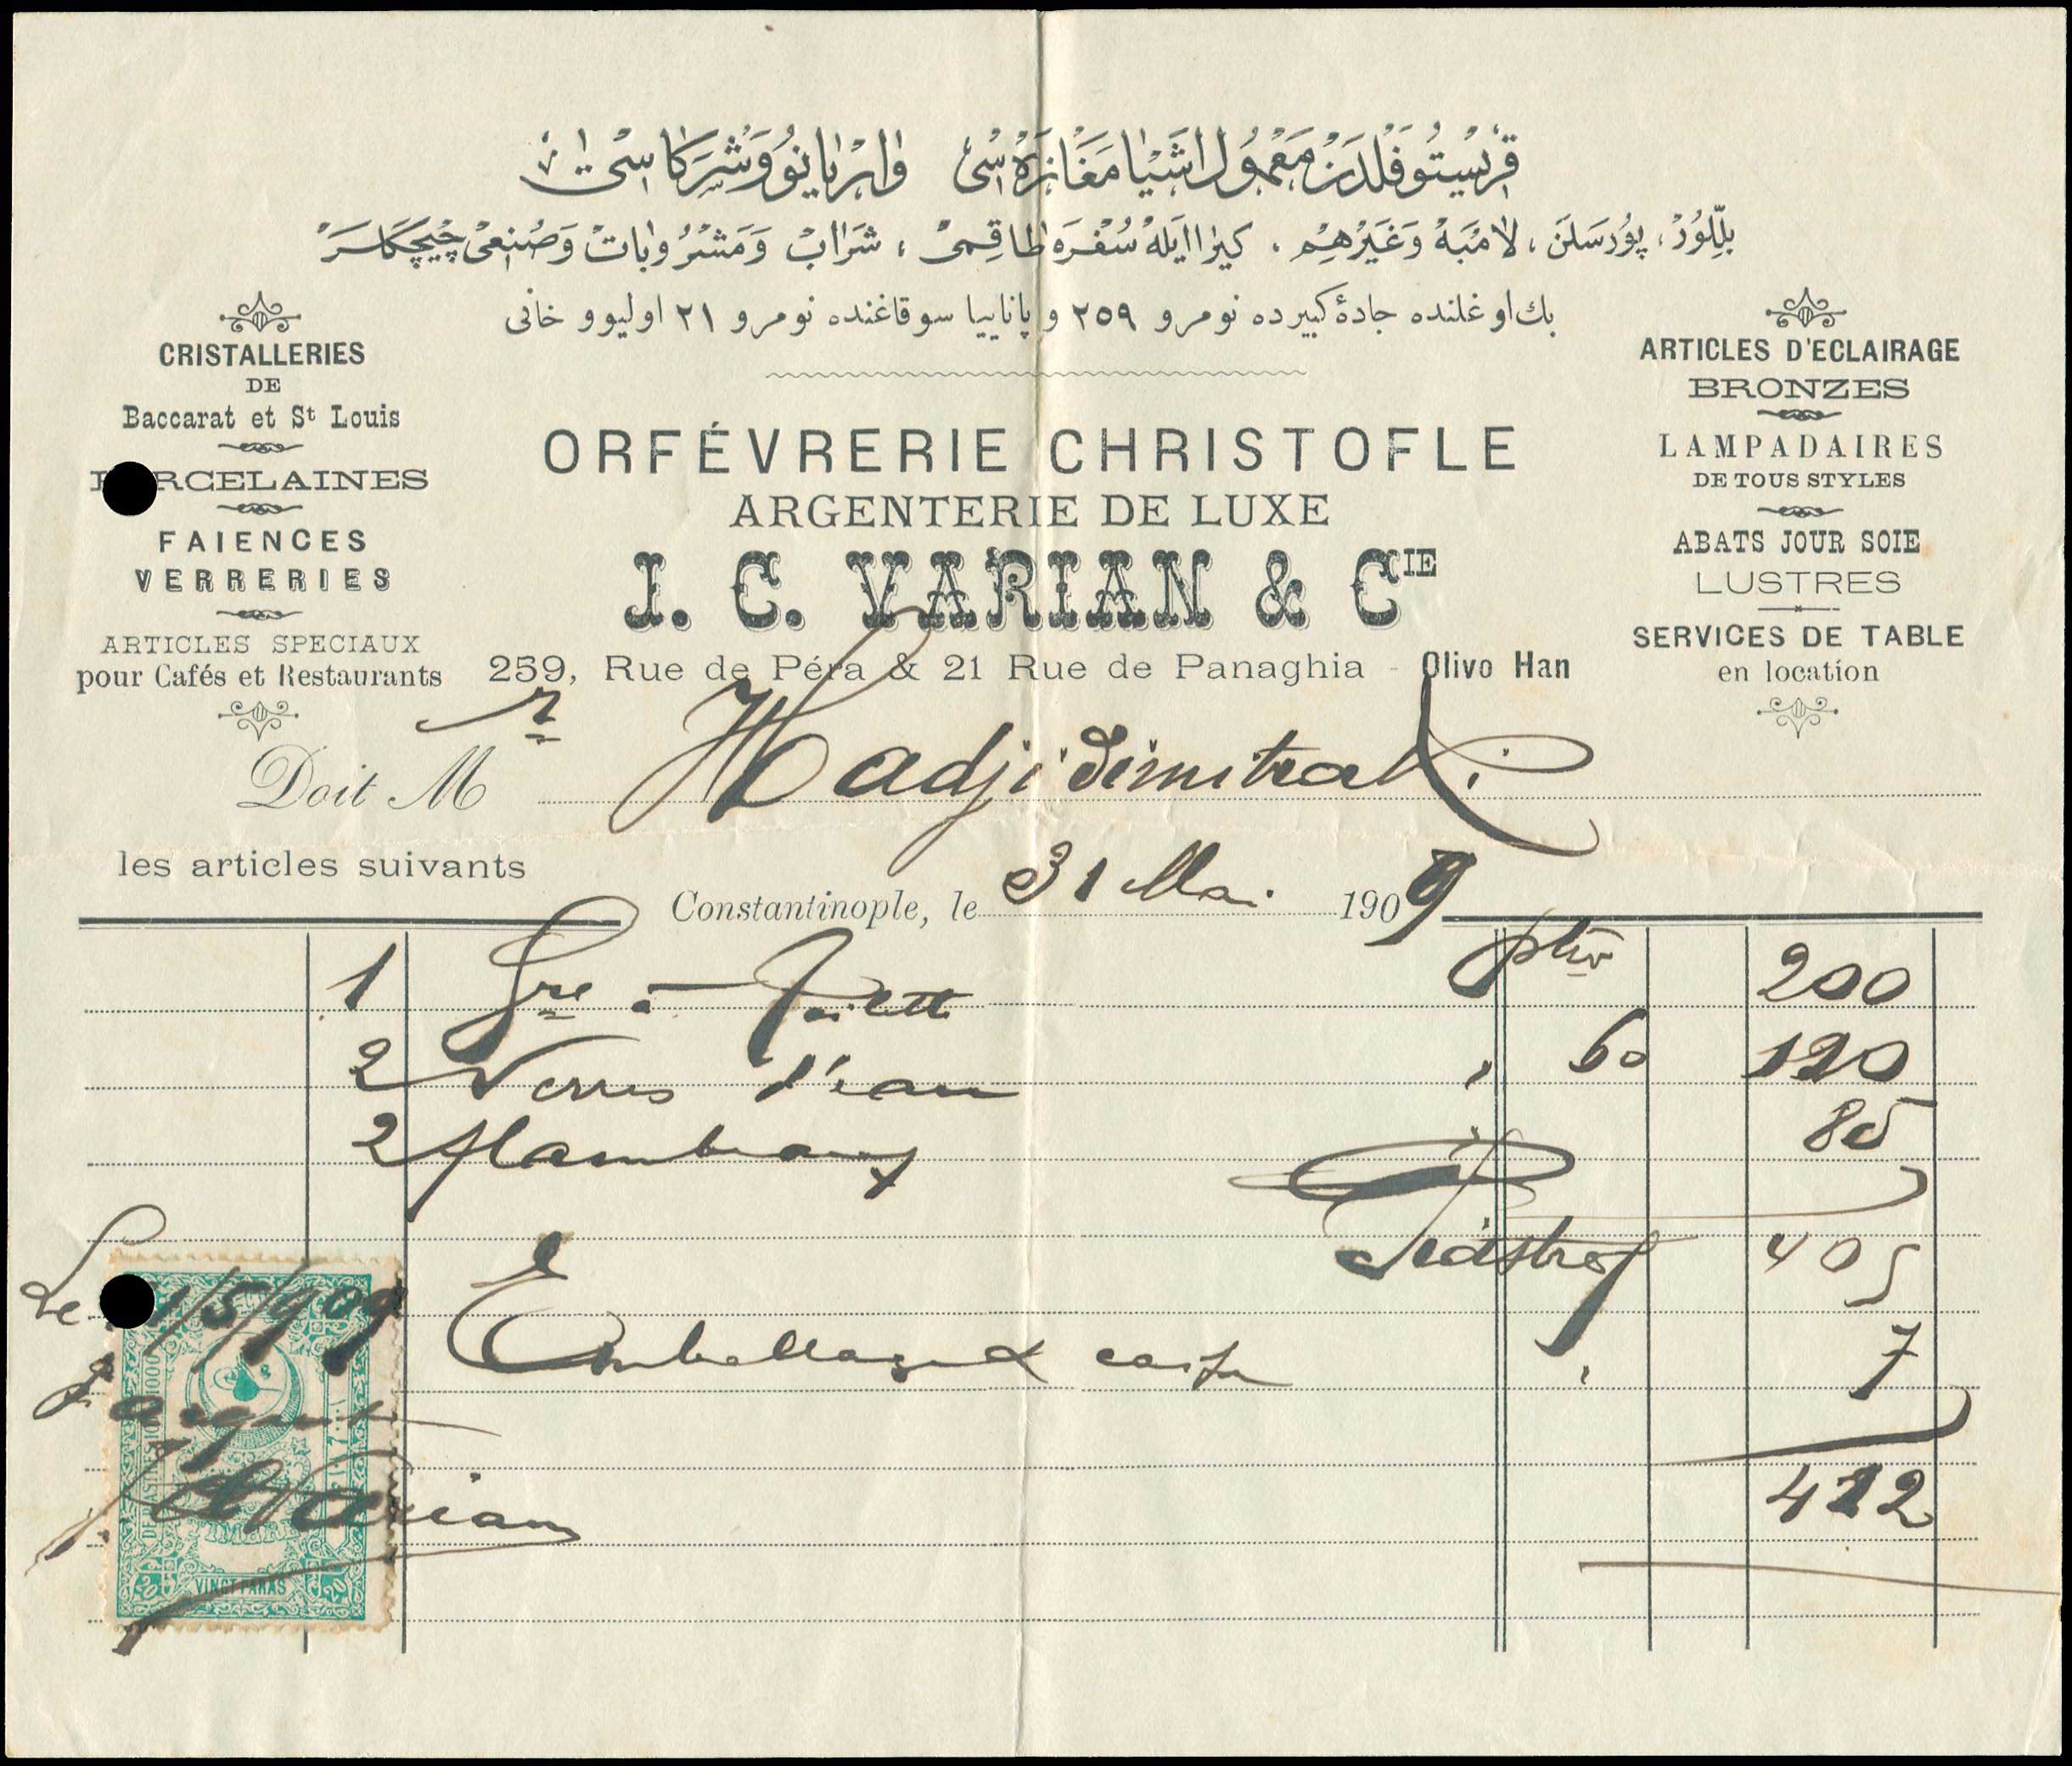 قریستوفلدن معمول اشیا مغازه سی واریانو و شرکاسی
بللور، پورسلن، لامبه وغیرهم . كیرا ایله سفره طاقمی ، شراب و مشروبات و صنعی چیچكلر
بك اوغلنده جادۀ كبیرده نومرو ٢٥٩ و پاناییا سوقاغنده نومرو ٢١ اولیوو خانی
CRISTALLERIES
DE
Baccarat et St Louis
PORCELAINES
FAIENCES
VERRERIES
ARTICLES SPECIAUX
pour Cafés et Restaurants
ORFÉVRERIE CHRISTOFLE
ARGENTERIE DE LUXE
J. C. VARIAN & CIE
259, Rue de Péra & 21 Rue de Panaghia - Olivo Han
ARTICLES D'ECLAIRAGE
BRONZES
LAMPADAIRES
DE TOUS STYLES
ABATS JOUR SOIE
LUSTRES
SERVICES DE TABLE
en location
Doit Mr Hadjidimitraki
les articles suivants
Constantinople, le 31 Mai 1909
1 Gre à Toilett 200
2 Verres d'eau 60 120
2 flambeaux 85
Piastres 405
Emballage & caisse 7
412
Le 1/5/909
Varian
VINGT PARAS
20 20